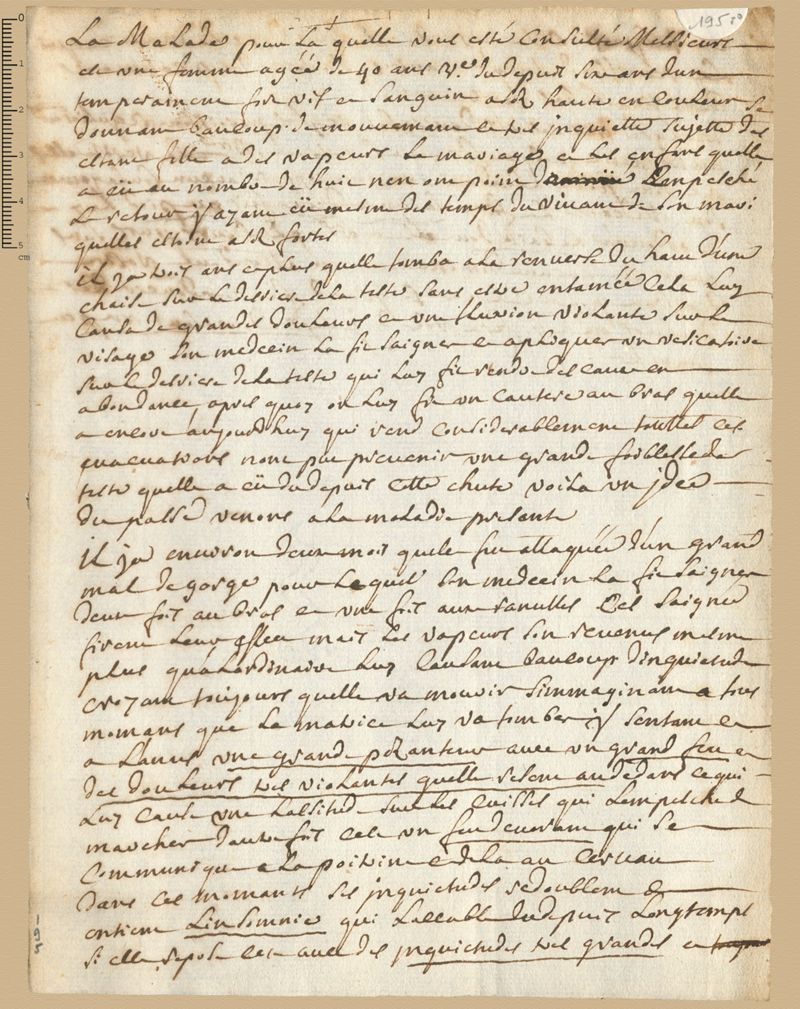 195
La Malade pour la quelle vous esté Consulté Messieurs
est une femme agéé de 40 ans du depuis six ans d'un
temperamene fort vif et sanguin assé haute en Couleur se
donnant baucoup de mouvemant et tres jnquiette sujette des
estant fille a des vapeurs le mariage et les enfans quelle
a eü au nombre de huit nen ont point empesché
le retour y ayant eü mesme des temps du vivant de son mari
quelles estoint assé fortes
il ya trois ans et plus quelle tomba a la renverse du haut d'une
chaise sur le derriere de la teste sans estre entaméé Cela luy
Causa de grandes douleurs et une fluxion violante sur le
visage son medecin la fit saigner et apliquer un vesicatoire
sur le derriere de la teste qui luy fit rendre des eaux en
abondance, apres quoy on luy fit un Cautere au bras quelle
a encore aujourdhuy qui rend Considerablement touttes ces
evacuations nont pu prevenir une grande foiblesse de
teste quelle a eü du depuis Cette chute voila un jdeé
du passé venons a la maladie presente
il ya environ deux mois quelle fut attaquéé d'un grand
mal de gorge pour Lequel son medecin la fit saigner
deux fois au bras et une fois aux ranulles Ces saigneé
firent leur effect mais les vapeurs son revenus mesme
plus qualordinaire luy Causant baucoup d'inquietude
croyant toujours quelle va mourir simmaginant a tous
momans que la matrice luy va tomber y sentant et
a Lanus une grande pesanteur avec un grand feu et
des douleurs tres violantes quelle resent audedans cequi
luy Cause une lassitude sur les Cuisses qui Lempesche de
marcher dautre fois cest un feu devorant qui se
Communique a la poitrine et de la au Cerveau
dans ces momants ses jnquietudes redoublent et
entient Linsomnie qui Laccable du depuis Longtemps
si elle repose cest avec des jnquietudes tres grandes et